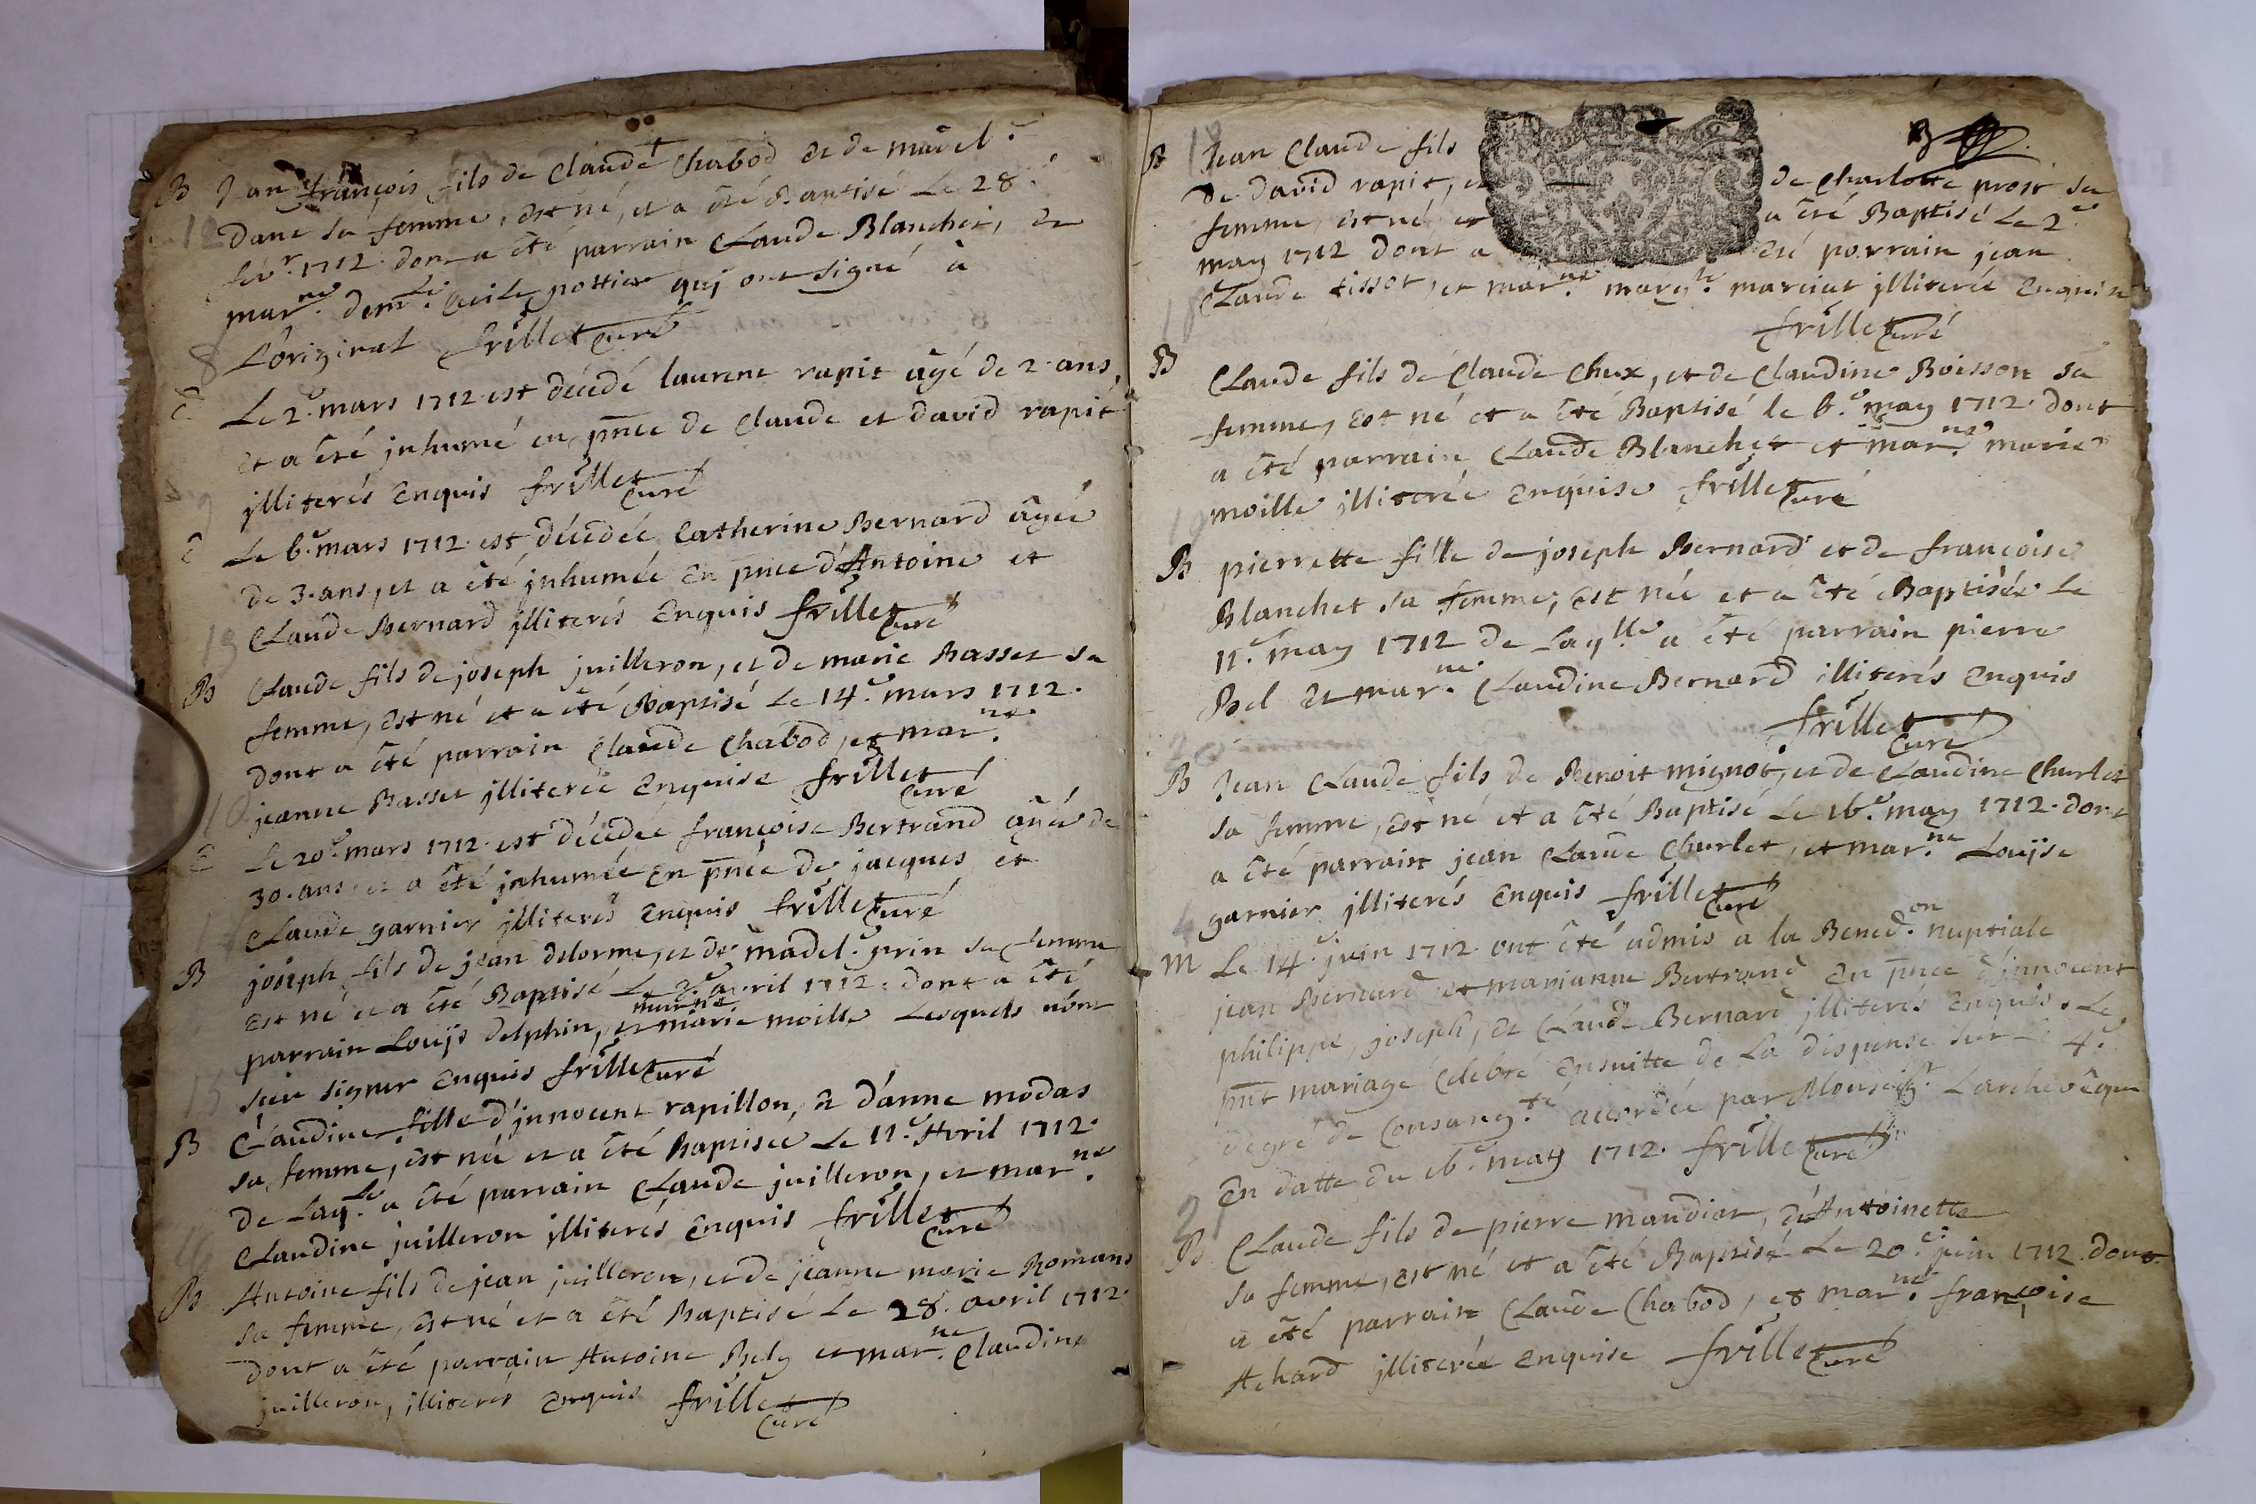 B Jean françois fils de Claude Chabod et de madel.e
dane sa femme, est né, et a été Baptisé Le 28.e
fév.r 1712. dont a été parrain Claude Blanchet, et
mar.ne dem.lle Cecile pottier qui ont signé à
L'original frillet Curé
E Le 2.e mars 1712 est décédé laurent rapit âgé de 2. ans
et a été inhumé en pnce de Claude et david rapit
jlliterés Enquis frillet Curé
E Le 6.e mars 1712. est décédée Catherine Bernard âgée
de 3. ans, et a été jnhumée En pnce d'Antoine et
Claude Bernard jlliterés Enquis frillet Curé
B Claude fils de joseph juilleron, et de marie Basset sa
femme, est né et a été Baptisé Le 14.e mars 1712.
dont a été parrain Claude Chabod, et mar.ne
jeanne Basset jlliterée Enquise frillet Curé
E Le 20.e mars 1712. est décédée françoise Bertrand âgée de
30. ans, et a été jnhumée En pnce de jacques et
Claude garnier jlliterés Enquis frillet Curé
B joseph fils de jean delorme, et de madel.e prin sa femme
est né et a été Baptisé Le 3.e avril 1712. dont a été
parrain Louijs delphin, et marne marie moille Lesquels n'ont
sceu signer Enquis frillet Curé
B Claudine fille d'jnnocent rapillon, et d'anne modas
sa femme, est née et a été Baptisée Le 11.e Avril 1712.
de Laq.le a été parrain Claude juilleron, et mar.ne
Claudine juilleron jlliterés Enquis frillet Curé
B Antoine fils de jean juilleron, et de jeanne marie Romans
sa femme, est né et a été Baptisé Le 28.e avril 1712.
dont a été parrain Antoine Bely et mar.ne Claudine
juilleron, jlliterés Enquis frillet Curé
B Jean Claude fils
de david rapit, et de Charlotte prost sa
femme, est né et a été Baptisé Le 2.e
may 1712 dont a été parrain jean
Claude tissot, et mar.ne marg.te jlliterée Enquise
frillet Curé
B Claude fils de Claude Chux, et de Claudine Boisson sa
femme, est né et a été Baptisé le 6.e may 1712. dont
a été parrain Claude Blanchet et mar.ne marie
moille jlliterée Enquise frillet Curé
B pierrette fille de joseph Bernard et de françoise
Blanchet sa femme, est née et a été Baptisée Le
11.e may 1712 de Laq.lle a été parrain pierre
Bel et mar.ne Claudine Bernard illiterés Enquis
frillet Curé
B Jean Claude fils de Benoit mignot, et de Claudine Churlet
sa femme, est né et a été Baptisé Le 16.e may 1712. dont
a été parrain jean Claude Churlet, et mar.ne Louijse
garnier jlliterés Enquis frillet Curé
M Le 14.e juin 1712 ont été admis a la Bened.on nuptiale
jean Bernard et marianne Bertrand En pnce d'jnnocent
philippe, joseph, et Claude Bernard jlliterés Enquis. Le
pnt mariage Celebré ensuitte de La dispense sur le 4.e
degré de Consang.té accordée par Monseig.r L'archevêque
En datte du 16.e may 1712. frillet Curé
B Claude fils de pierre mandier, et d'Antoinette
sa femme, est né et a été Baptisé Le 20.e juin 1712. dont
a été parrain Claude Chabod, et mar.ne françoise
Achard jlliterée Enquise frillet Curé